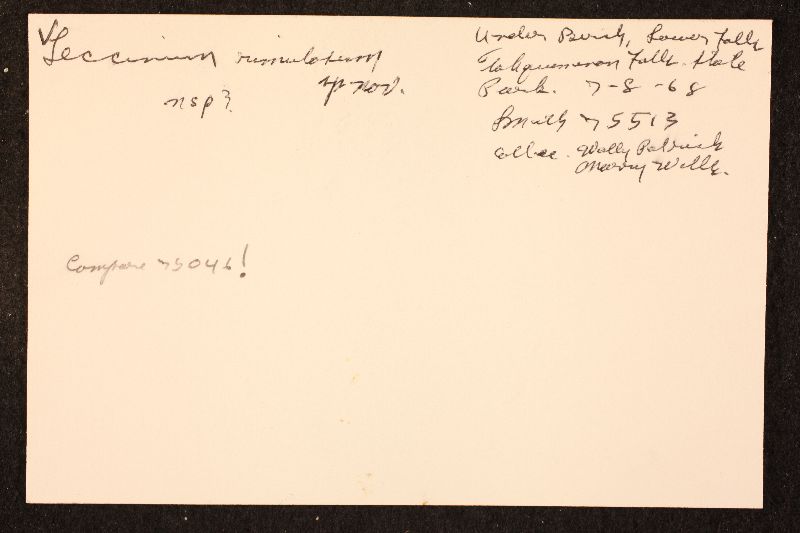 ✓Leccinum rimulosum
sp. nov.
nsp?
Under Birch, Lower Falls
Tahquamenon Falls. State
Park. 7-8-68
Smith 75513
collec. Wally Patrick
Harry Wells.
Compare 75046!